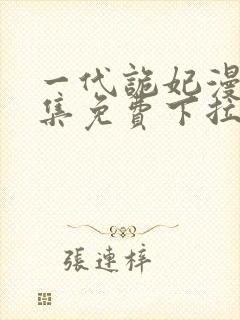 一代詭妃漫
集免費下拉
張連梓